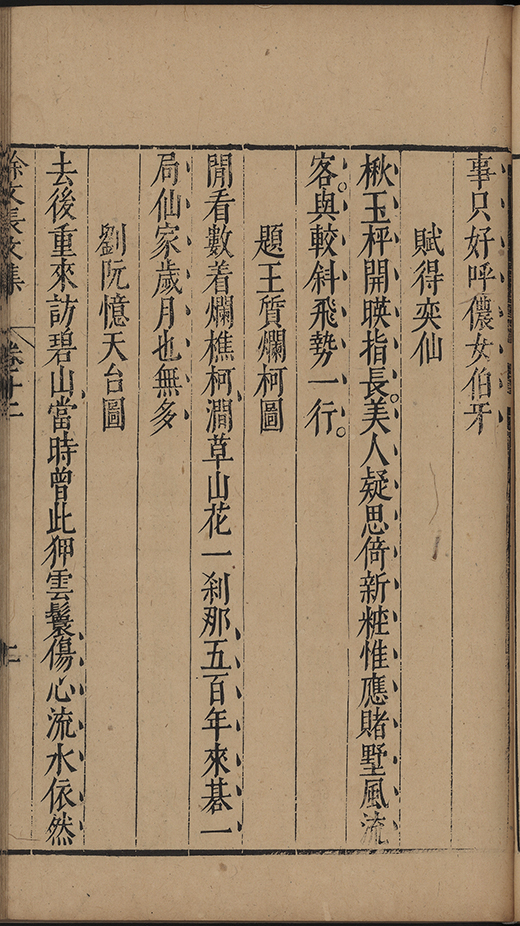 事只好呼儂女伯牙
賦得奕仙
楸玉枰開暎指長。美人疑思倚新粧惟應賭墅風流
客。與較斜飛勢一行。
題王質爛柯圖
閒看數着爛樵柯澗草山花一刹那五百年來棊一
局仙家歲月也無多
劉阮憶天台圖
去後重來訪碧山當時曾此狎雲鬟傷心流水依然
徐文長文集 卷十二 二